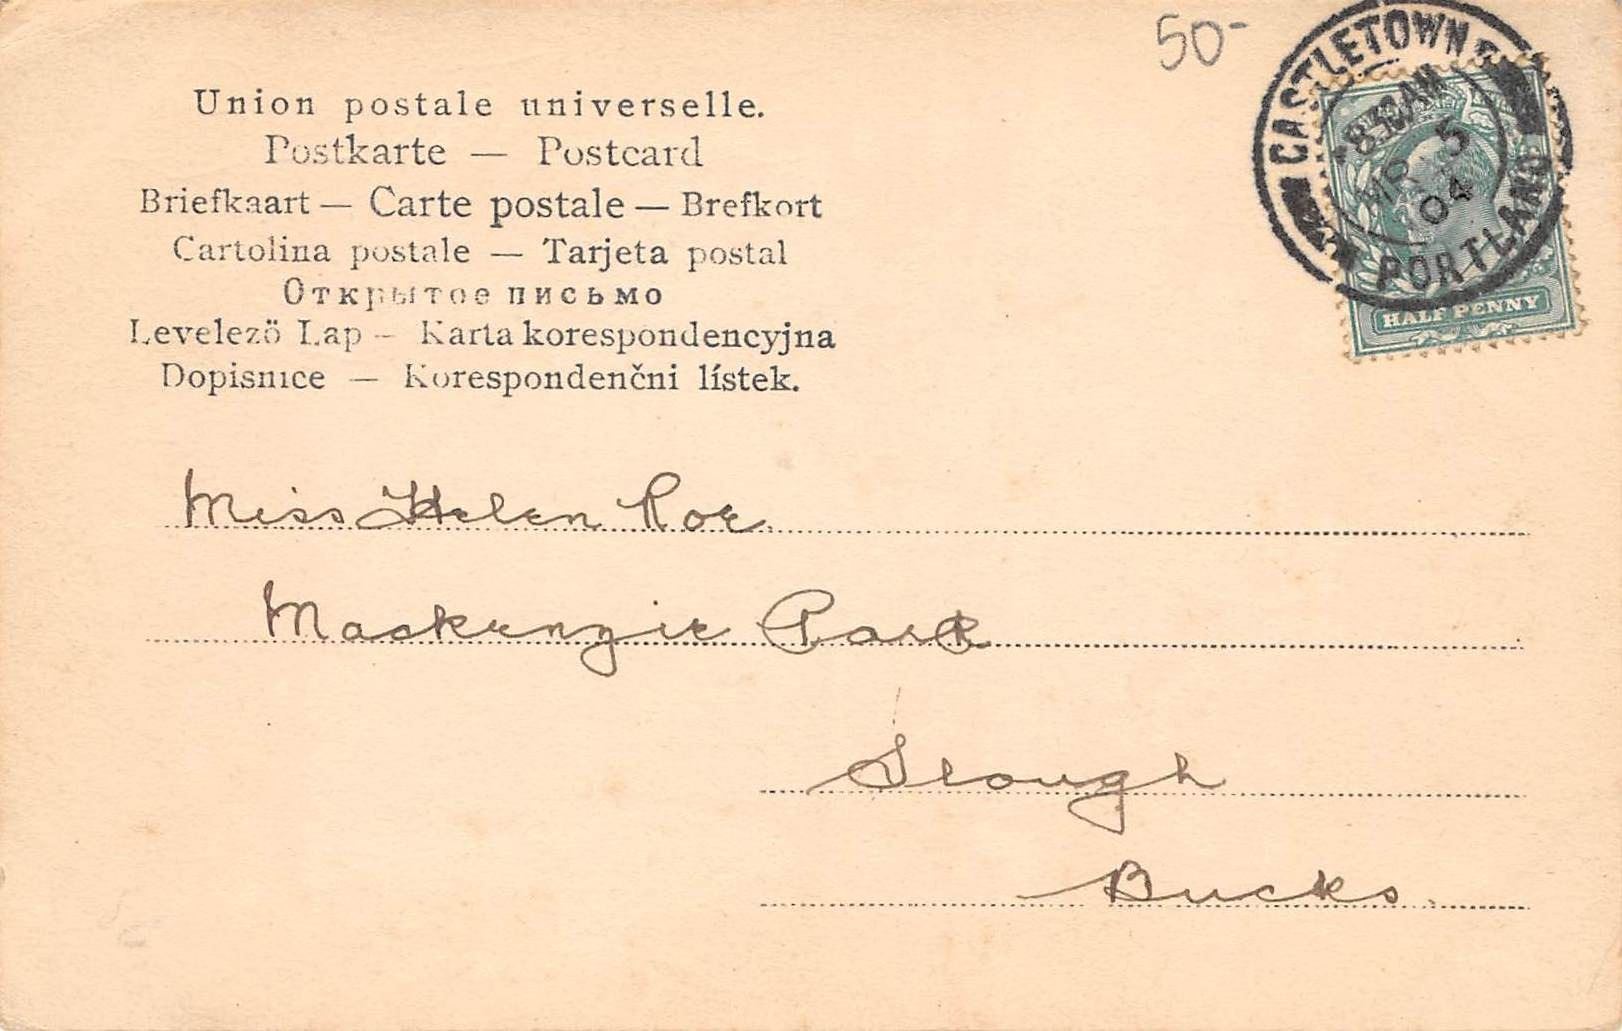 50-
CASTLETOWN
8.30AM
MR 5
04
PORTLAND
HALF PENNY
Union postale universelle.
Postkarte — Postcard
Briefkaart — Carte postale — Brefkort
Cartolina postale — Tarjeta postal
Открытое письмо
Levelező Lap — Karta korespondencyjna
Dopisnice — Korespondenčni lístek.
Miss Helen Roe.
Mackenzie Park
Slough
Bucks.